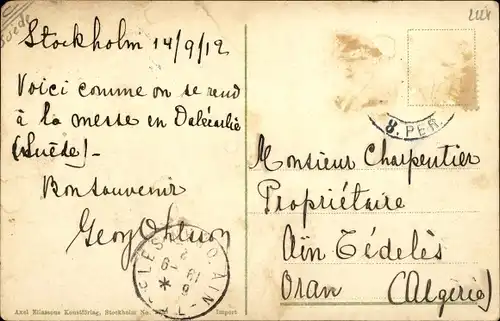 Suède
2128
Stockholm 14/9/12
Voici comme on se rend
à la messe en Dalécarlie
(Suède)-
Bon souvenir
Georg Ohlsson
8. PER
Monsieur Charpentier
Propriétaire
Aïn Tédelès
Oran (Algérie)
AIN-T
LES
Axel Eliassons Konstförlag, Stockholm No.
Import